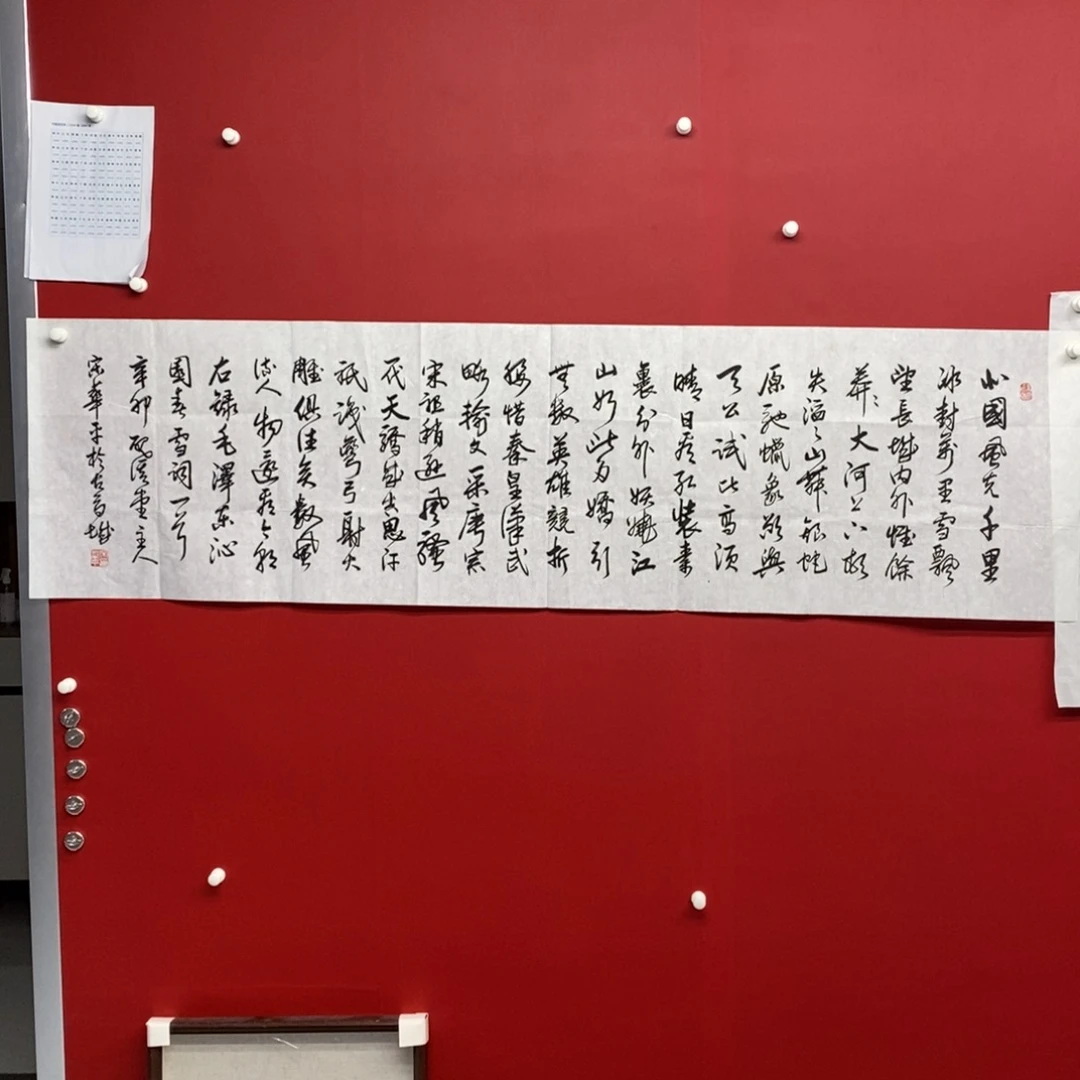 北國風光千里
冰封萬里雪飄
望長城内外惟餘
莽〻大河上下頓
失滔〻山舞銀蛇
原馳蠟象欲與
天公試比高須
晴日看紅裝素
裹分外妖嬈江
山如此多嬌引
無數英雄競折
腰惜秦皇漢武
略輸文采唐宗
宋祖稍遜風騷
一代天驕成吉思汗
祇識彎弓射大
雕俱往矣數風
流人物還看今朝
右録毛澤東沁
園春雪詞一首
辛卯 主人
宗華平於古高城